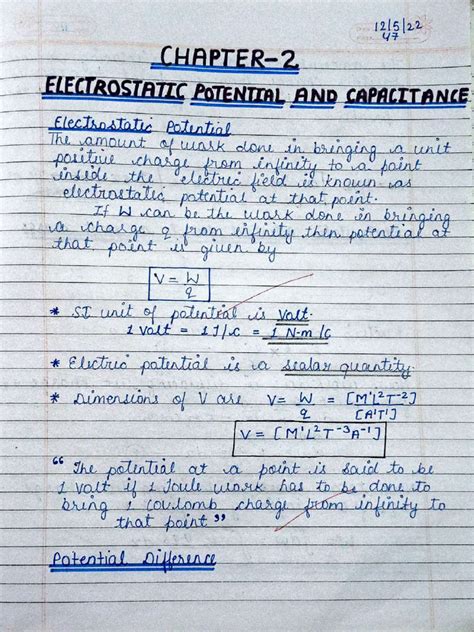 12/5/22
47
CHAPTER-2
ELECTROSTATIC POTENTIAL AND CAPACITANCE
Electrostatic Potential
The amount of work done in bringing a unit
positive charge from infinity to a point
inside the electric field is known as
electrostatic potential at that point.
If W can be the work done in bringing
a charge q from infinity then potential at
that point is given by
V = W/q
* SI unit of potential is Volt.
1 Volt = 1 J/c = 1 N-m/c
* Electric potential is a scalar quantity.
* Dimensions of V are V = W/q = [M¹L²T⁻²]/[A¹T¹]
V = [M¹L²T⁻³A⁻¹]
“ The potential at a point is said to be
1 volt if 1 Joule work has to be done to
bring 1 coulomb charge from infinity to
that point ”
Potential Difference